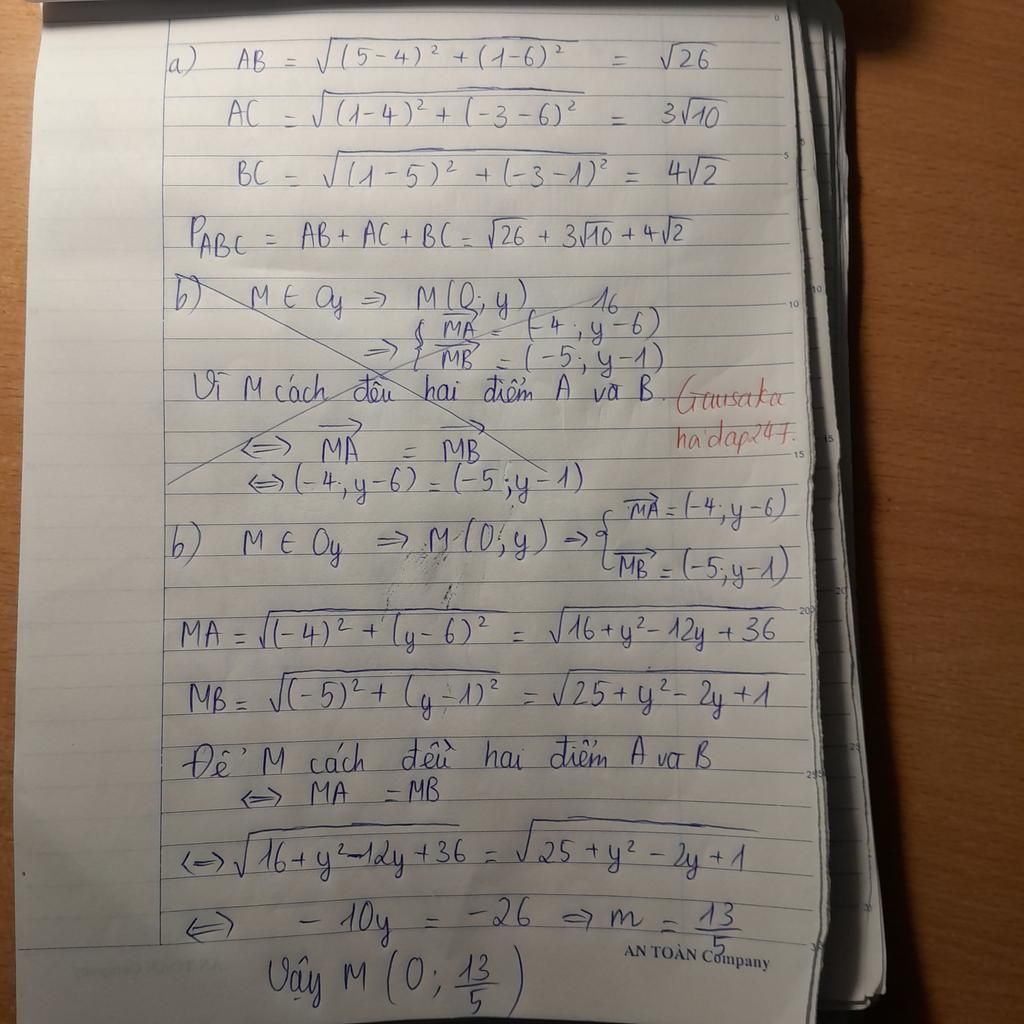 a) AB = √((5-4)² + (1-6)²) = √26
AC = √((1-4)² + (-3-6)²) = 3√10
BC = √((1-5)² + (-3-1)²) = 4√2
P_ABC = AB + AC + BC = √26 + 3√10 + 4√2
b) M ∈ Oy ⇒ M(0; y) 16
⇒ { MA→ = (-4; y-6)
MB→ = (-5; y-1)
Vì M cách đều hai điểm A và B.
Gausaka
hoidap247.
⇔ MA→ = MB→
⇔ (-4; y-6) = (-5; y-1)
b) M ∈ Oy ⇒ M(0; y) ⇒ { MA→ = (-4; y-6)
MB→ = (-5; y-1)
MA = √((-4)² + (y-6)²) = √(16+y²-12y+36)
MB = √((-5)² + (y-1)²) = √(25+y²-2y+1)
Để M cách đều hai điểm A và B
⇔ MA = MB
⇔ √(16+y²-12y+36) = √(25+y²-2y+1)
⇔ -10y = -26 ⇒ m = 13/5
AN TOÀN Company
Vậy M (0; 13/5)